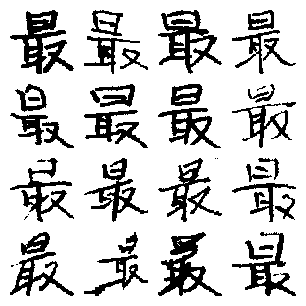 最最最最
最最最最
最最最最
最最最最